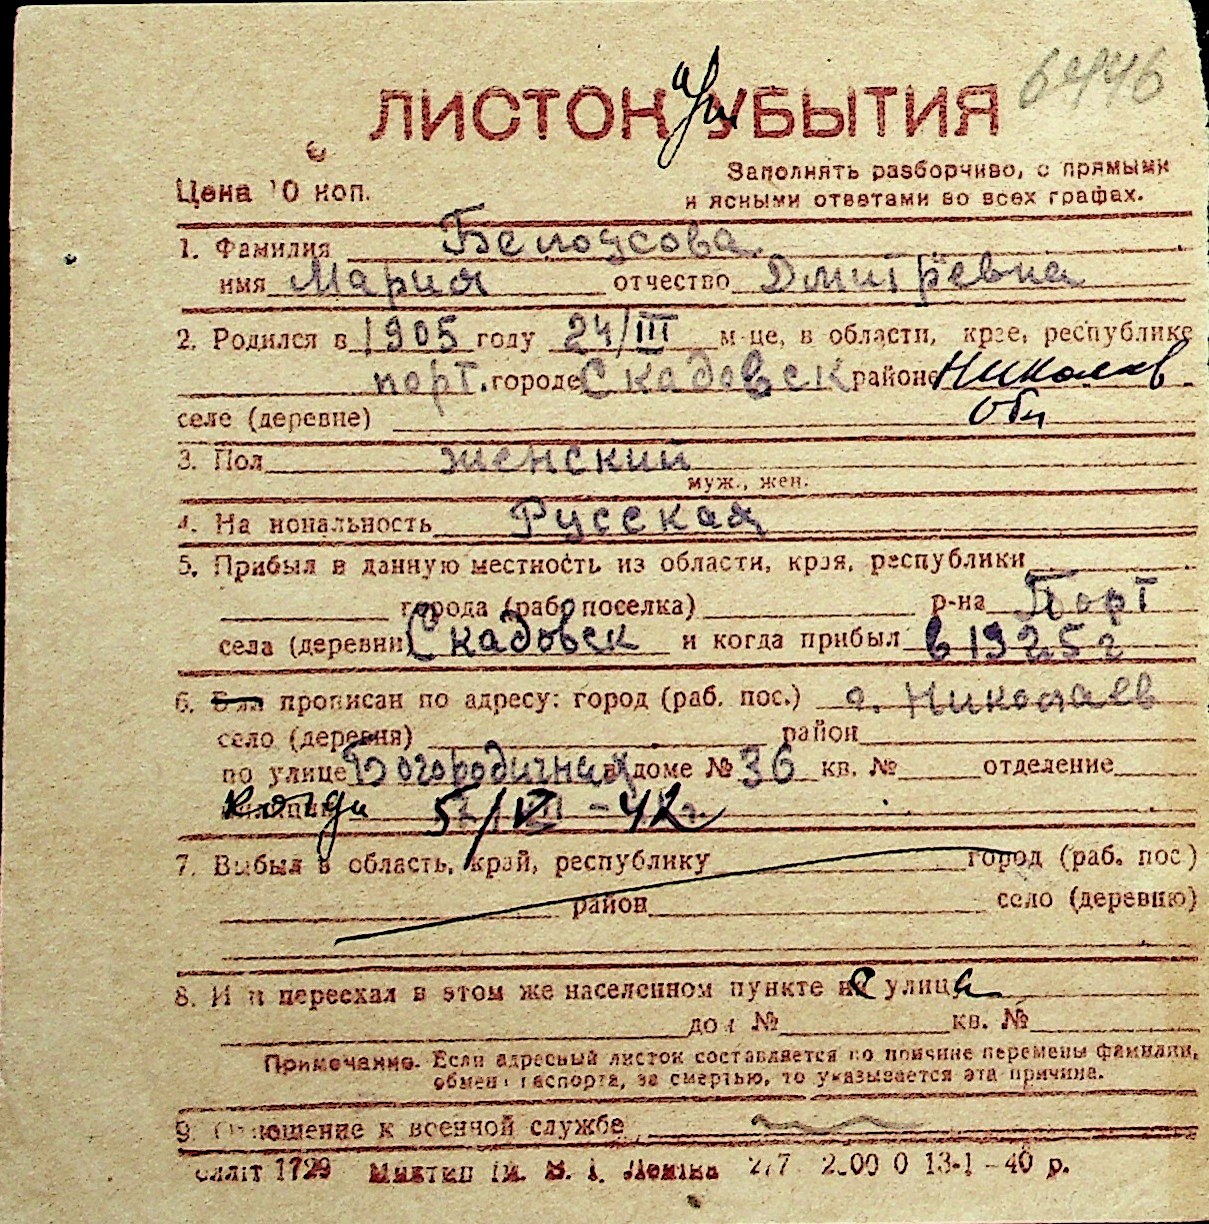 6446
ЛИСТОК УБЫТИЯ
Цена 10 коп.
Заполнять разборчиво, с прямыми
и ясными ответами во всех графах.
1. Фамилия Белоусова
имя Мария отчество Дмитревна
2. Родился в 1905 году 24/III м-це, в области, крае, республике
порт. городе Скадовск районе Николаев
обл
селе (деревне)
3. Пол женский
муж., жен.
4. На иональность Русская
5. Прибыл в данную местность из области, края, республики
города (раб. поселка) р-на Порт
села (деревни) Скадовск и когда прибыл в 1925 г
6. Был прописан по адресу: город (раб. пос.) г. Николаев
село (деревня) район
по улице Богородичная в доме № 36 кв. № отделение
когда 5/V - 42 г.
7. Выбыл в область, край, республику город (раб. пос)
район село (деревню)
8. И и переехал в этом же населенном пункте на улица
дом № кв. №
Примечание. Если адресный листок составляется по причине перемены фамилии,
обмен паспорта, за смертью, то указывается эта причина.
9. Отношение к военной службе
1729 В. І. Леніна 2.00 0 13-1-40 р.